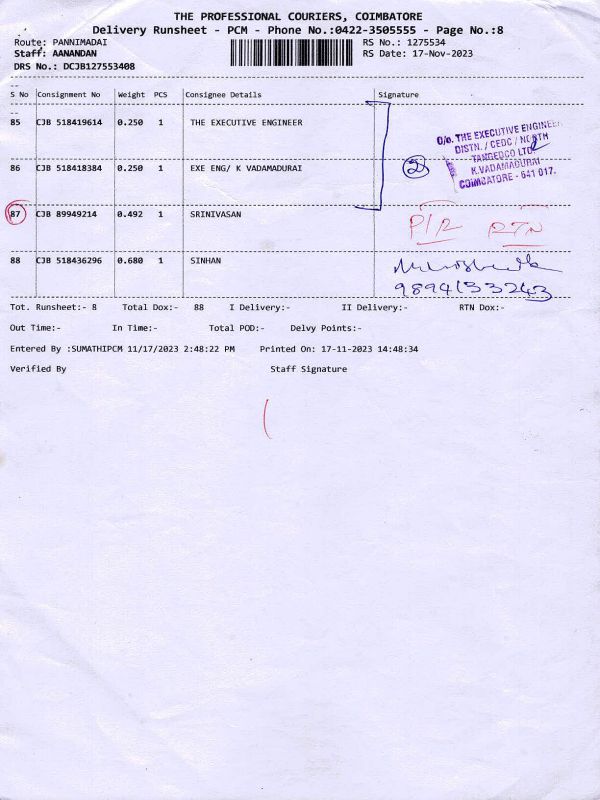 THE PROFESSIONAL COURIERS, COIMBATORE
Delivery Runsheet - PCM - Phone No.:0422-3505555 - Page No.:8
Route: PANNIMADAI RS No.: 1275534
Staff: AANANDAN RS Date: 17-Nov-2023
DRS No.: DCJB127553408
S No Consignment No Weight PCS Consignee Details Signature
85 CJB 518419614 0.250 1 THE EXECUTIVE ENGINEER
O/o. THE EXECUTIVE ENGINEER
DISTN. / CEDC / NORTH
TANGEDCO LTD
K.VADAMADURAI
COIMBATORE - 641 017.
86 CJB 518418384 0.250 1 EXE ENG/ K VADAMADURAI 2
87 CJB 89949214 0.492 1 SRINIVASAN P/R RTN
88 CJB 518436296 0.680 1 SINHAN
9894133243
Tot. Runsheet:- 8 Total Dox:- 88 I Delivery:- II Delivery:- RTN Dox:-
Out Time:- In Time:- Total POD:- Delvy Points:-
Entered By :SUMATHIPCM 11/17/2023 2:48:22 PM Printed On: 17-11-2023 14:48:34
Verified By Staff Signature